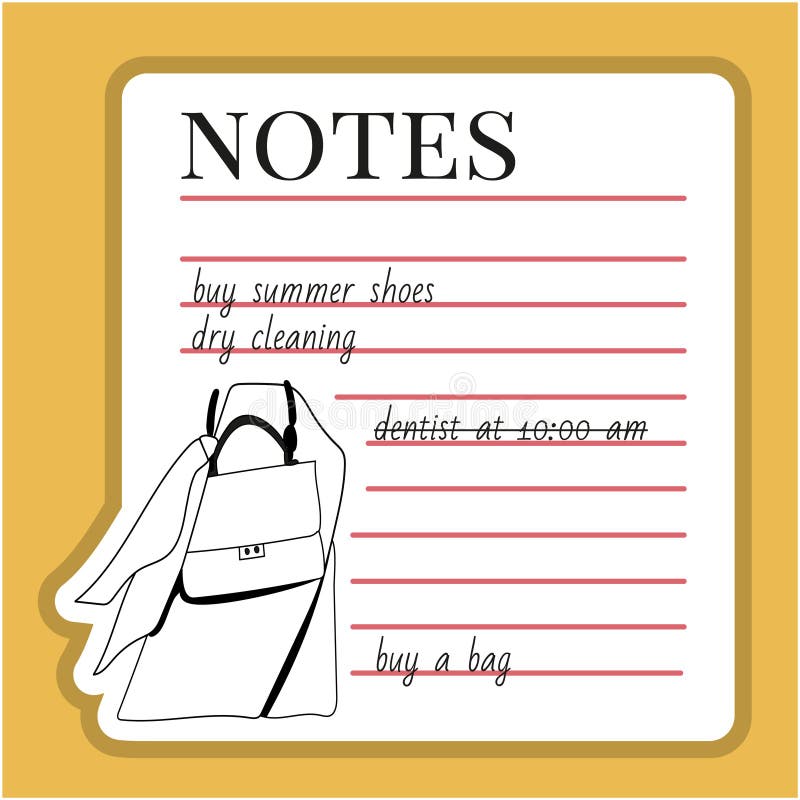 NOTES
buy summer shoes
dry cleaning
dentist at 10:00 am
buy a bag